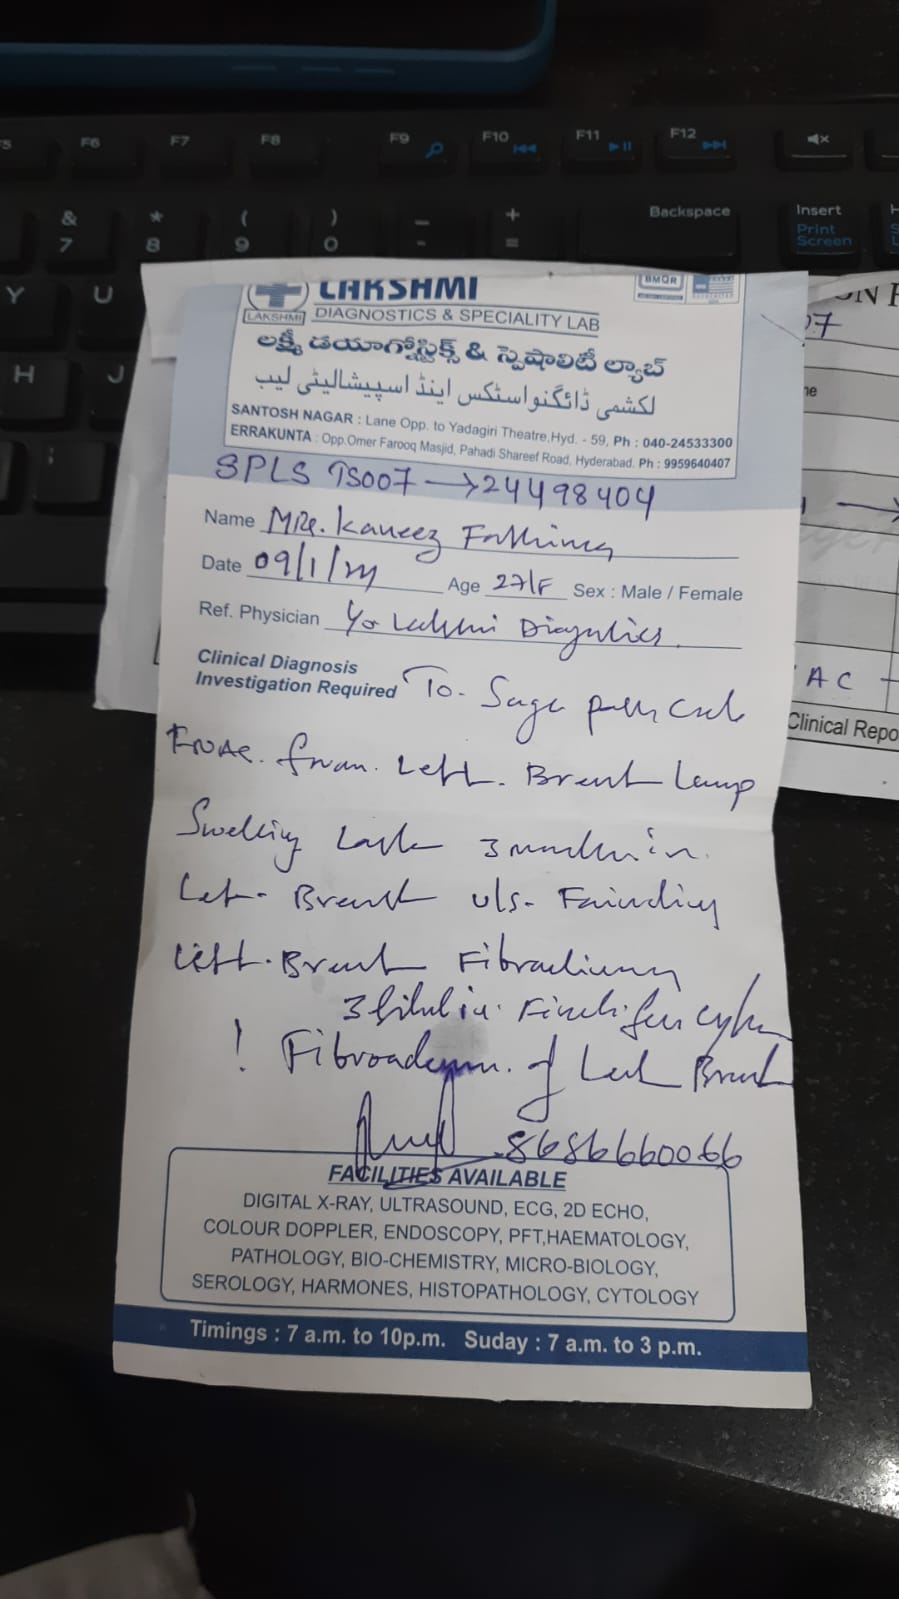 F6 F7 F8 F9 F10 F11 F12
& * ( ) _ + Backspace Insert
7 8 9 0 - = Print Screen
Y U
H J
LAKSHMI
LAKSHMI DIAGNOSTICS & SPECIALITY LAB
BMQR
లక్ష్మీ డయాగ్నోస్టిక్స్ & స్పెషాలిటీ ల్యాబ్
لکشمی ڈائگنواسٹکس اینڈ اسپیشالیٹی لیب
SANTOSH NAGAR : Lane Opp. to Yadagiri Theatre,Hyd. - 59, Ph : 040-24533300
ERRAKUNTA : Opp.Omer Farooq Masjid, Pahadi Shareef Road, Hyderabad. Ph : 9959640407
SPLS TS007 → 24498404
Name Mrs. Kaneez Fathima
Date 09/1/24 Age 27/F Sex : Male / Female
Ref. Physician Lakshmi Diagnostics
Clinical Diagnosis
Investigation Required To
FNAC. from. Left. Breast Lump
Swelling 3 in
Left. Breast U/S- Finding
Left. Breast
! Fibroadenoma. of Left Breast
8686660066
FACILITIES AVAILABLE
DIGITAL X-RAY, ULTRASOUND, ECG, 2D ECHO,
COLOUR DOPPLER, ENDOSCOPY, PFT,HAEMATOLOGY,
PATHOLOGY, BIO-CHEMISTRY, MICRO-BIOLOGY,
SEROLOGY, HARMONES, HISTOPATHOLOGY, CYTOLOGY
Timings : 7 a.m. to 10p.m. Suday : 7 a.m. to 3 p.m.
07
AC
Clinical Repo